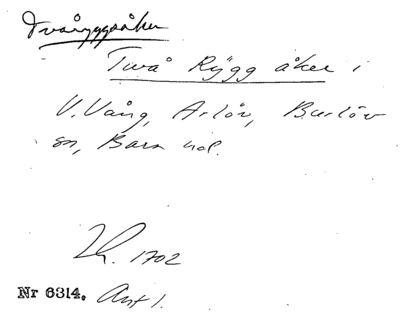 Tvåryggsåker
Twå Rÿgg åker i
V. Vång, Arlöv, Burlöv
sn, Bara hd.
Lk. 1702
Nr 6314. Akt 1.